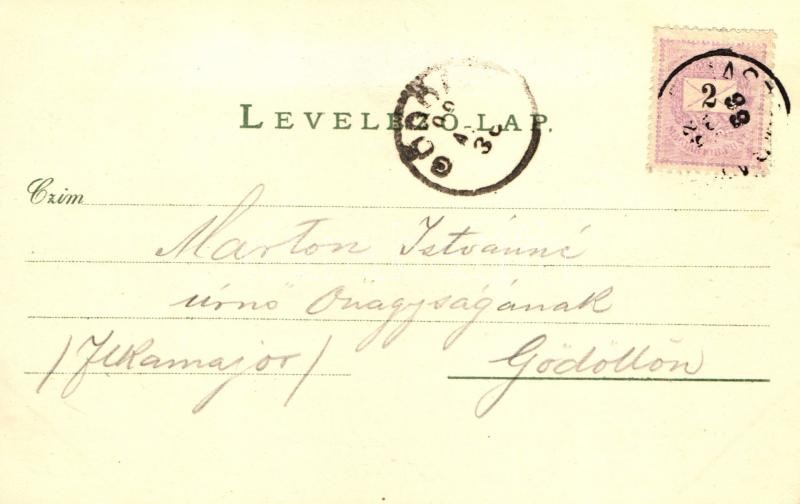 LEVELEZŐ-LAP.
2
Czim
Marton Istvánné
úrnő Őnagyságának
/Ilkamajor/ Gödöllőn